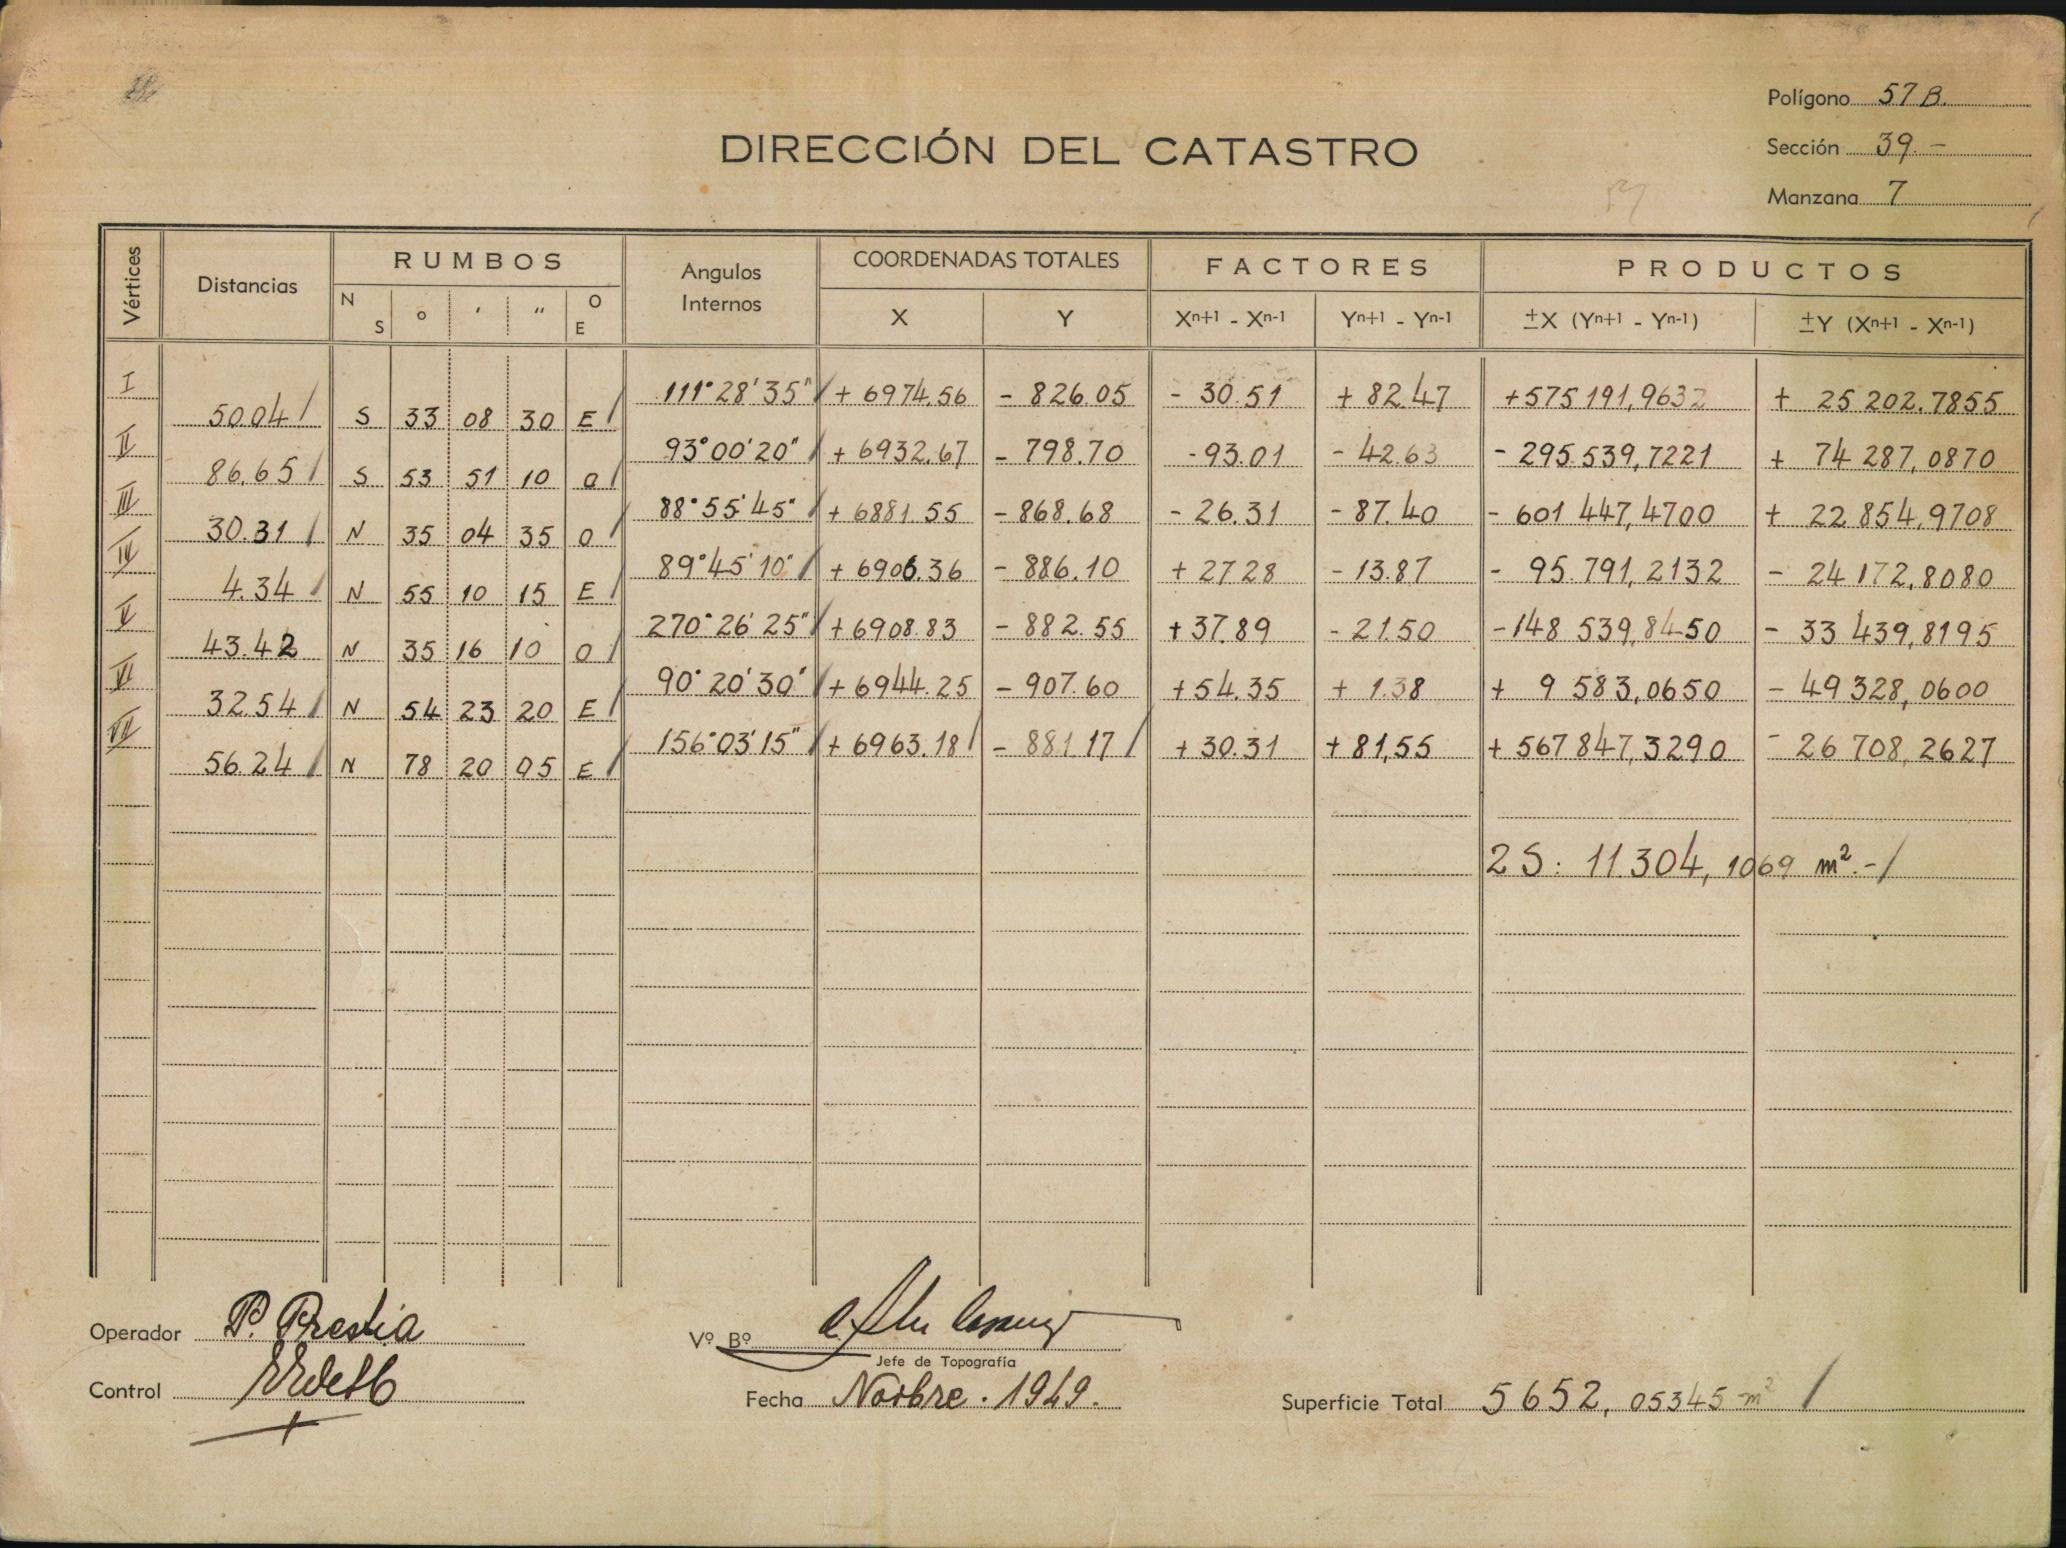 Polígono 57 B.
DIRECCIÓN DEL CATASTRO
Sección 39 -
Manzana 7
Vértices Distancias RUMBOS Angulos Internos COORDENADAS TOTALES FACTORES PRODUCTOS
N S ° ' " O E X Y Xn+1 - Xn-1 Yn+1 - Yn-1 ±X (Yn+1 - Yn-1) ±Y (Xn+1 - Xn-1)
I 111° 28' 35" + 6974.56 - 826.05 - 30.51 + 82.47 +575 191,9632 + 25 202.7855
50.04 S 33 08 30 E
II 93° 00' 20" + 6932.67 - 798.70 -93.01 - 42.63 - 295.539,7221 + 74 287,0870
86.65 S 53 51 10 O
III 88° 55' 45" + 6881.55 - 868.68 - 26.31 - 87.40 - 601 447,4700 + 22 854,9708
30.31 N 35 04 35 O
IV 89° 45' 10" + 6906.36 - 886.10 + 27 28 - 13.87 - 95.791,2132 - 24 172,8080
4.34 N 55 10 15 E
V 270° 26' 25" + 6908.83 - 882.55 + 37.89 - 21.50 -148 539,8450 - 33 439,8195
43.42 N 35 16 10 O
VI 90° 20' 30" + 6944.25 - 907.60 + 54.35 + 1.38 + 9 583,0650 - 49 328,0600
32.54 N 54 23 20 E
VII 156° 03' 15" + 6963.18 - 881.17 + 30.31 + 81,55 + 567 847,3290 - 26 708,2627
56.24 N 78 20 05 E
2 S: 11.304,1069 m². -
Operador P. Prestia
Vº Bº
Jefe de Topografía
Control
Fecha Novbre. 1949.
Superficie Total 5652,05345 m²